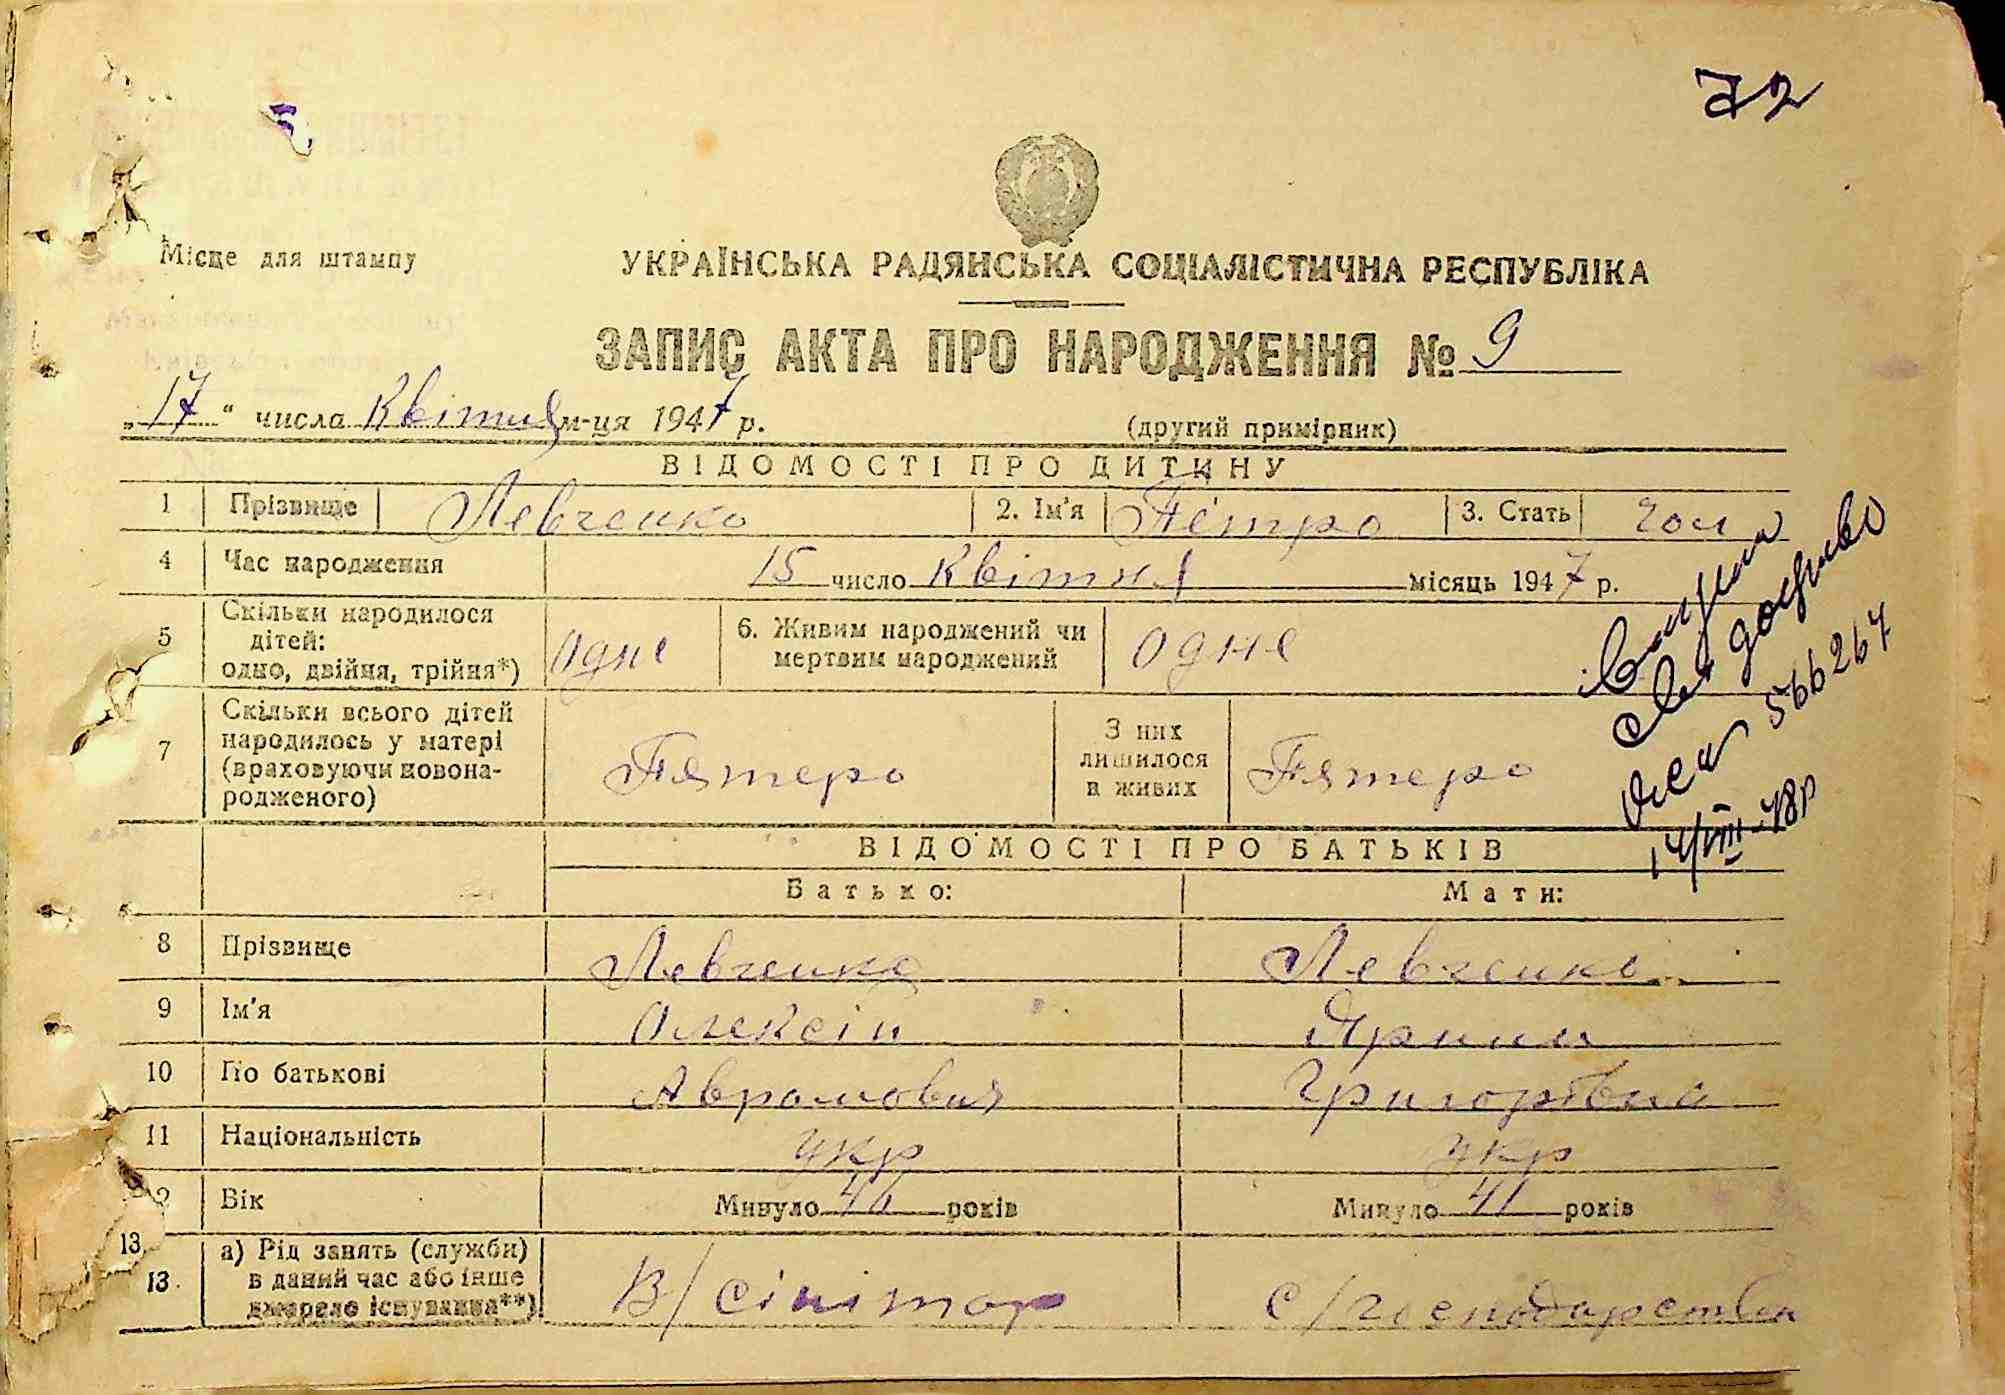 72
Місце для штампу
УКРАЇНСЬКА РАДЯНСЬКА СОЦІАЛІСТИЧНА РЕСПУБЛІКА
ЗАПИС АКТА ПРО НАРОДЖЕННЯ № 9
„17“ числа Квітня м-ця 1947 р.
(другий примірник)
ВІДОМОСТІ ПРО ДИТИНУ
1 Прізвище Левченко 2. Ім'я Петро 3. Стать чол
4 Час народження 15 число Квітня місяць 1947 р.
5 Скільки народилося дітей: одно, двійня, трійня*) одне 6. Живим народжений чи мертвим народжений одне
7 Скільки всього дітей народилось у матері (враховуючи новонародженого) Пятеро З них лишилося в живих Пятеро
566267
14/VIII-48р
ВІДОМОСТІ ПРО БАТЬКІВ
Батько: Мати:
8 Прізвище Левченко Левченко
9 Ім'я Олексій Ярина
10 По батькові Аврамович Григорівна
11 Національність укр укр
12 Вік Минуло років Минуло 41 років
13.
13. а) Рід занять (служби) в даний час або інше джерело існування**) В/сінітор с/господарства